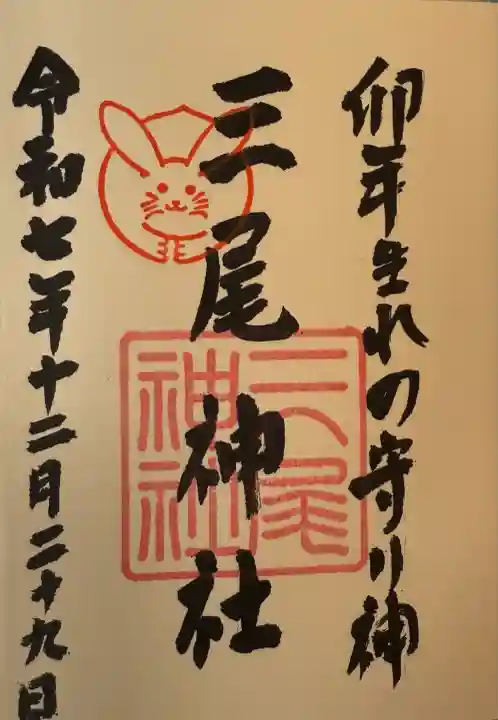 卯年生れの守り神
三尾神社
三尾
神社
令和七年十二月二十九日